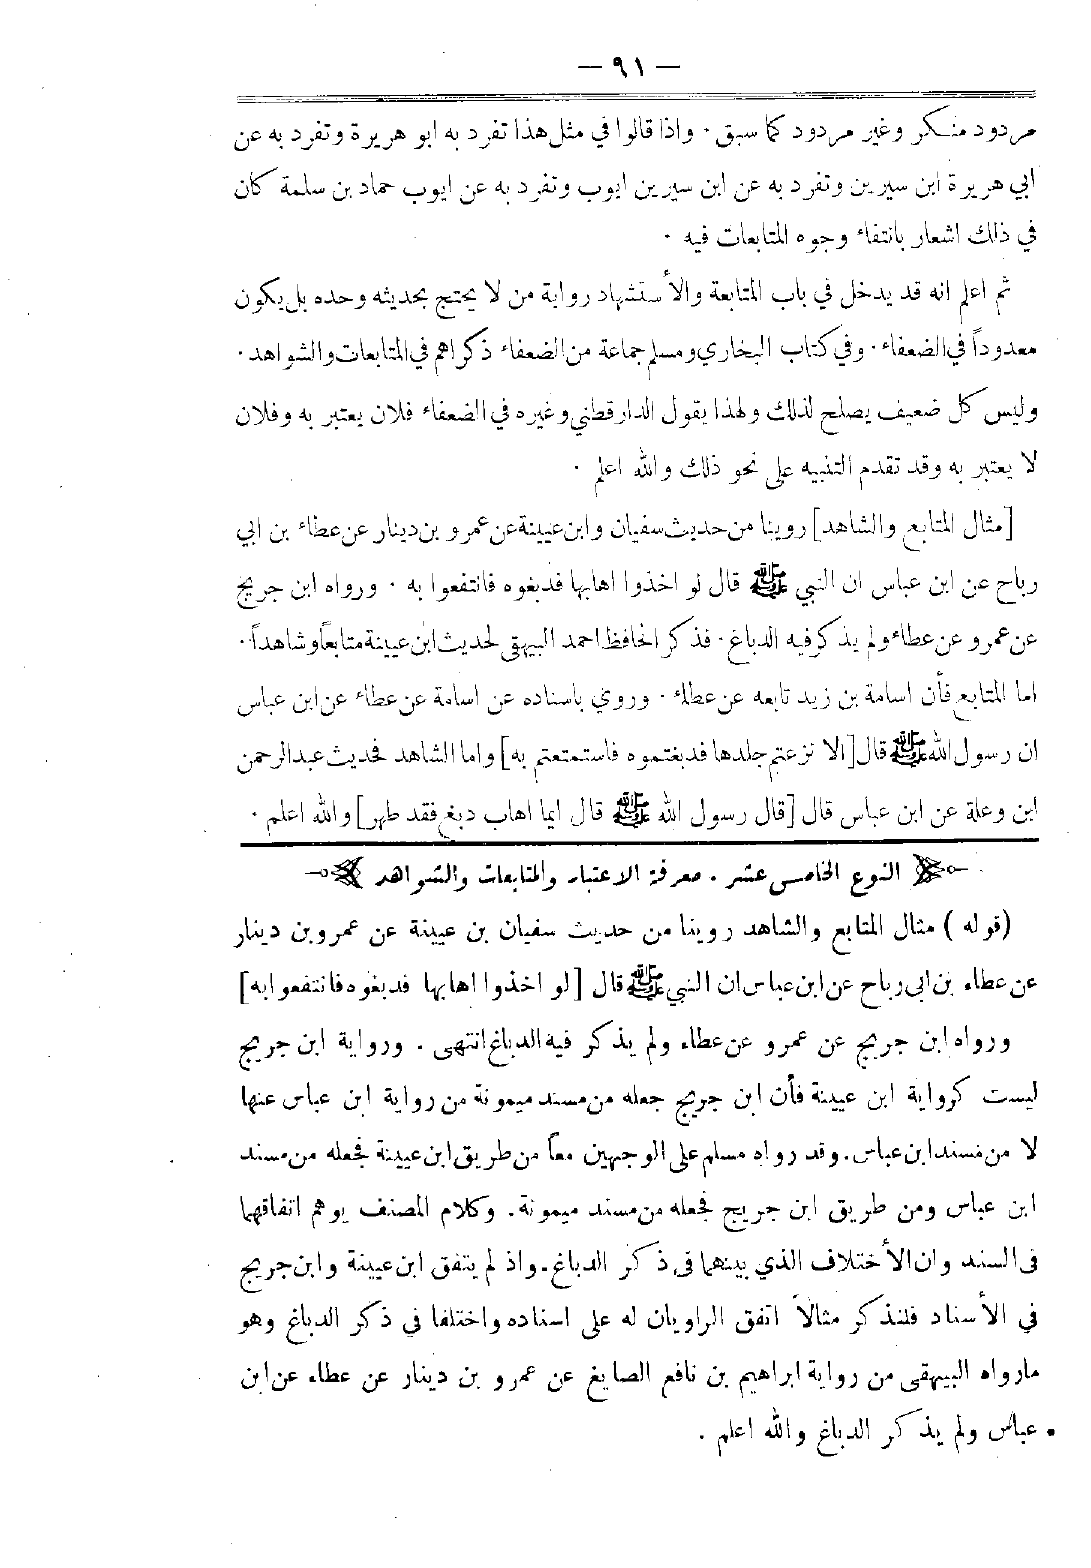 — ٩١ —
مردود منكر وغير مردود كما سبق . واذا قالوا في مثل هذا تفرد به ابو هريرة وتفرد به عن
ابي هريرة ابن سيرين وتفرد به عن ابن سيرين ايوب وتفرد به عن ايوب حماد بن سلمة كان
في ذلك اشعار بانتفاء وجوه المتابعات فيه .
ثم اعلم انه قد يدخل في باب المتابعة والأستشهاد رواية من لا يحتج بحديثه وحده بل يكون
معدوداً في الضعفاء . وفي كتاب البخاري ومسلم جماعة من الضعفاء ذكراهم في المتابعات والشواهد .
وليس كل ضعيف يصلح لذلك ولهذا يقول الدارقطني وغيره في الضعفاء فلان يعتبر به وفلان
لا يعتبر به وقد تقدم التنبيه على نحو ذلك والله اعلم .
[مثال المتابع والشاهد] روينا من حديث سفيان وابن عيينة عن عمرو بن دينار عن عطاء بن ابي
رباح عن ابن عباس ان النبي ﷺ قال لو اخذوا اهابها فدبغوه فانتفعوا به . ورواه ابن جريج
عن عمرو عن عطاء ولم يذكر فيه الدباغ . فذكر الحافظ احمد البيهقي لحديث ابن عيينة متابعاً وشاهداً .
اما المتابع فأن اسامة بن زيد تابعه عن عطاء . وروي باسناده عن اسامة عن عطاء عن ابن عباس
ان رسول الله ﷺ قال [الا نزعتم جلدها فدبغتموه فاستمتعتم به] واما الشاهد فحديث عبدالرحمن
ابن وعلة عن ابن عباس قال [قال رسول الله ﷺ قال ايما اهاب دبغ فقد طهر] والله اعلم .
النوع الخامس عشر . معرفة الاعتبار والمتابعات والشواهد
(قوله) مثال المتابع والشاهد روينا من حديث سفيان بن عيينة عن عمرو بن دينار
عن عطاء بن ابى رباح عن ابن عباس ان النبي ﷺ قال [لو اخذوا اهابها فدبغوه فانتفعوا به]
ورواه ابن جريج عن عمرو عن عطاء ولم يذكر فيه الدباغ انتهى . ورواية ابن جريج
ليست كرواية ابن عيينة فأن ابن جريج جعله من مسند ميمونة من رواية ابن عباس عنها
لا من مسند ابن عباس . وقد رواه مسلم على الوجهين معاً من طريق ابن عيينة فجعله من مسند
ابن عباس ومن طريق ابن جريج فجعله من مسند ميمونة . وكلام المصنف يوهم اتفاقهما
فى السند وان الأختلاف الذي بينهما فى ذكر الدباغ . واذ لم يتفق ابن عيينة وابن جريج
في الأسناد فلنذكر مثالاً اتفق الراويان له على اسناده واختلفا في ذكر الدباغ وهو
مارواه البيهقى من رواية ابراهيم بن نافع الصايغ عن عمرو بن دينار عن عطاء عن ابن
عباس ولم يذكر الدباغ والله اعلم .